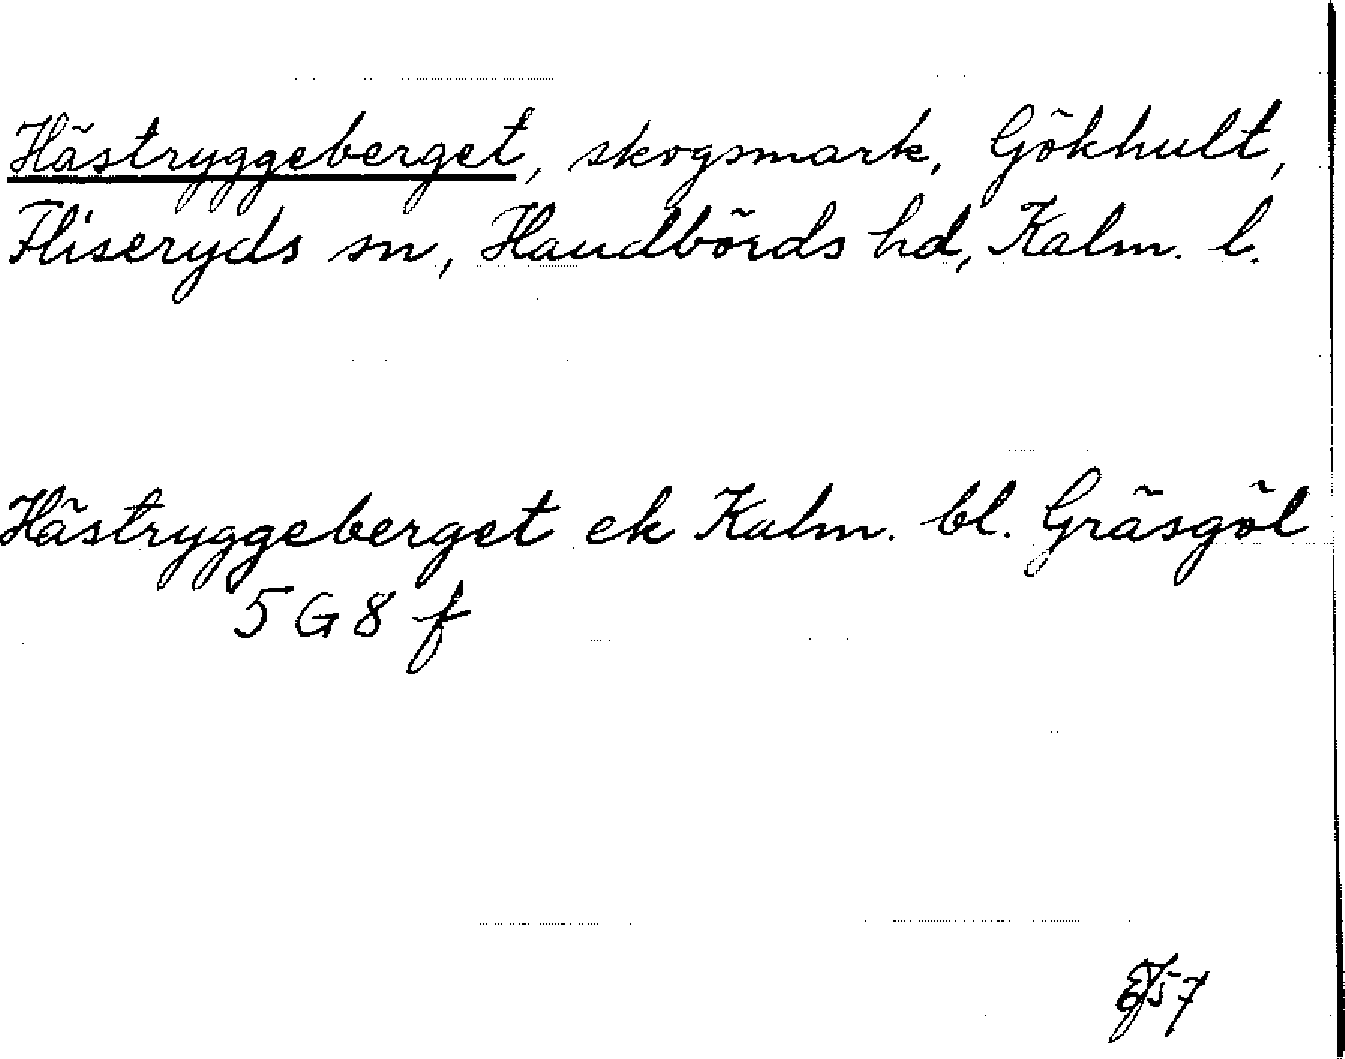 Hästryggeberget, skogsmark, Gökhult,
Fliseryds sn, Handbörds hd, Kalm. l.
Hästryggeberget ek Kalm. bl. Gräsgöl
5 G 8 f
57